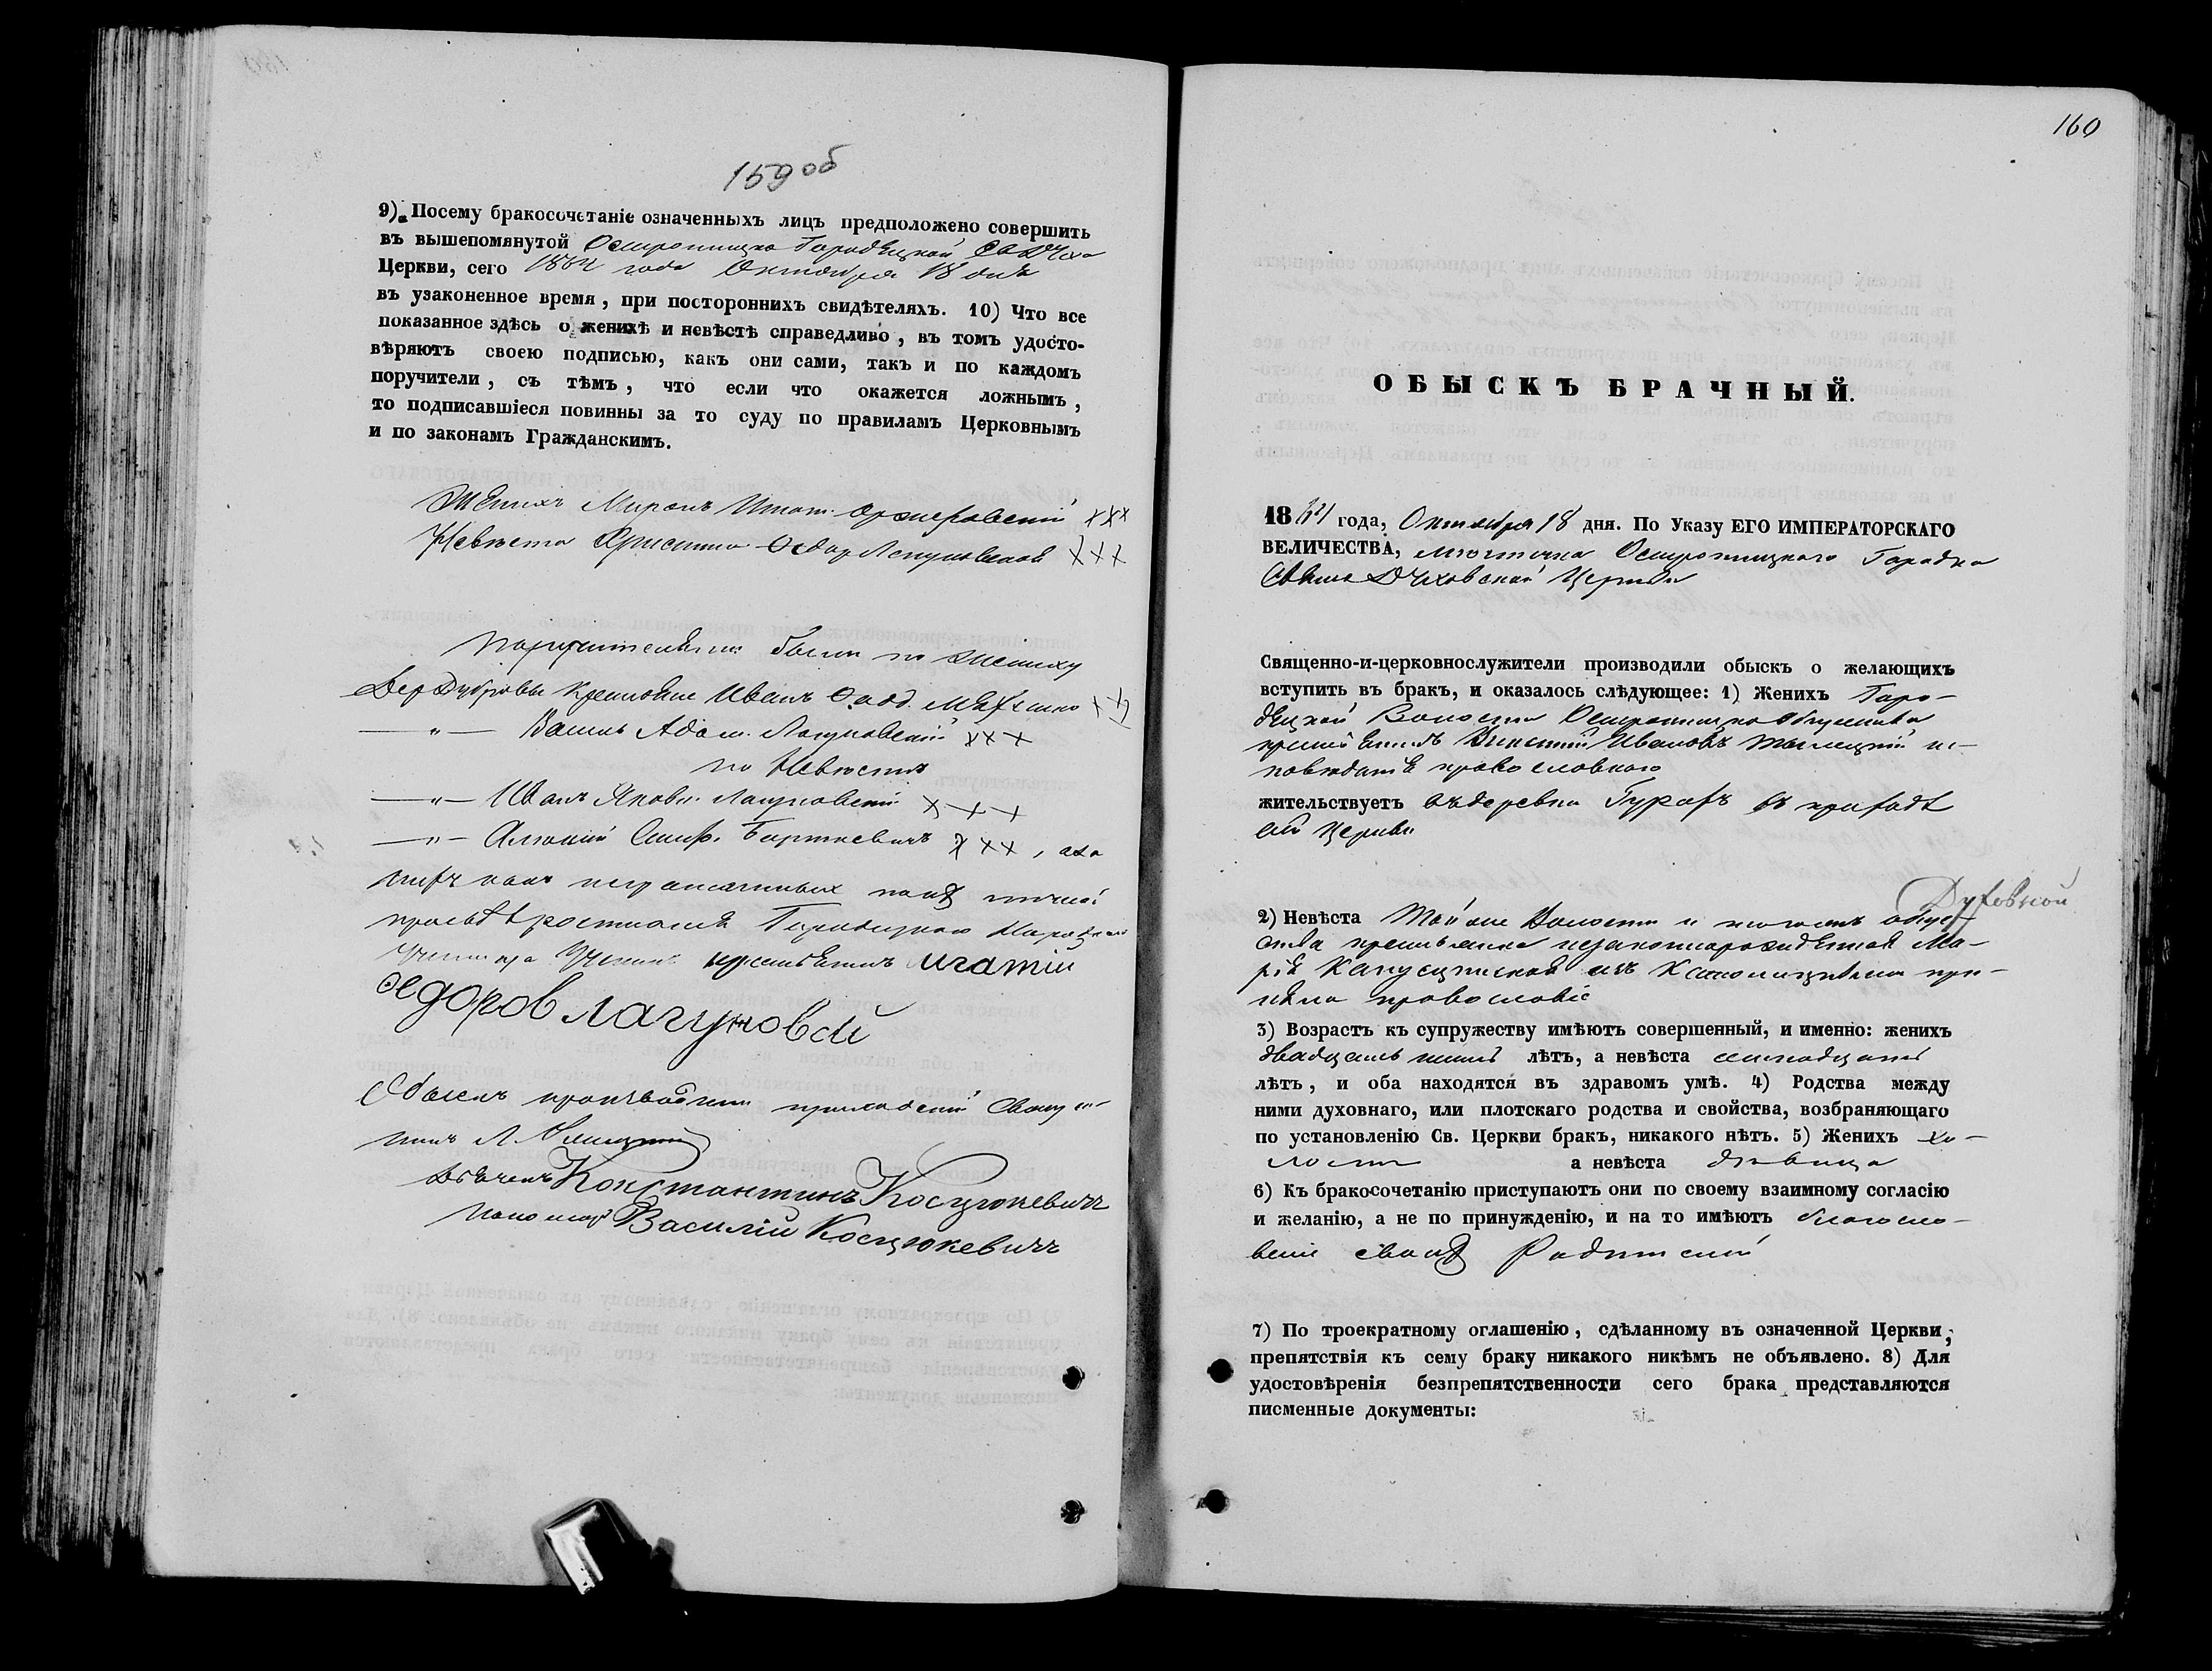 159 об
9) Посему бракосочетаніе означенныхъ лицъ предположено совершить
въ вышепомянутой Остропицко Городецкой Св. Духо
Церкви, сего 1864 года Октября 18 дня
въ узаконенное время, при постороннихъ свидѣтеляхъ. 10) Что все
показанное здѣсь о женихѣ и невѣстѣ справедливо, въ томъ удосто-
вѣряютъ своею подписью, какъ они сами, такъ и по каждомъ
поручители, съ тѣмъ, что если что окажется ложнымъ,
то подписавшіеся повинны за то суду по правиламъ Церковнымъ
и по законамъ Гражданскимъ.
Женихъ Миронъ Игнат. ххх
Невѣста Христина Ѳедор. Лагуновская ххх
поручителями были по Женихѣ
Дер Дубровы Крестьяне Иванъ Ѳадд. ххх
—„— Василь Адам. Лагуновскій ххх
по Невѣстѣ
—„— Иванъ Яковл. Лагуновскій ххх
—„— Алексій Барткевичъ ххх, а за
нихъ какъ неграмотныхъ по ихъ личной
прозьбѣ росписался Городецкаго Народнаго
Училища Ученикъ крестьянинъ Игнатій
Ѳедоров Лагуновскй
Обыскъ производили приходскій Священ-
никъ Л.
Дьячекъ Константинъ Косцюкевичъ
Пономарь Василій Косцюкевичъ
160
ОБЫСКЪ БРАЧНЫЙ.
1864 года, Октября 18 дня. По Указу ЕГО ИМПЕРАТОРСКАГО
ВЕЛИЧЕСТВА, мѣстечка Остропицкаго Городка
Свято Духовской Церкви
Священно-и-церковнослужители производили обыскъ о желающихъ
вступить въ бракъ, и оказалось слѣдующее: 1) Женихъ Горо-
децкой Волости Остропицкаго общества
крестьянинъ Ивановъ ис-
повѣданія православнаго
жительствуетъ въ деревни въ приходѣ
сей Церкви
Духовской
2) Невѣста Той же Волости и того жъ обще-
ства крестьянка незаконнорожденная Ма-
рія Капусцинская изъ Католицизма при-
няла православіе
3) Возрастъ къ супружеству имѣютъ совершенный, и именно: женихъ
двадцать лѣтъ, а невѣста
лѣтъ, и оба находятся въ здравомъ умѣ. 4) Родства между
ними духовнаго, или плотскаго родства и свойства, возбраняющаго
по установленію Св. Церкви бракъ, никакого нѣтъ. 5) Женихъ хо-
лостъ а невѣста дѣвица
6) Къ бракосочетанію приступаютъ они по своему взаимному согласію
и желанію, а не по принужденію, и на то имѣютъ благосло-
веніе своихъ Родителей
7) По троекратному оглашенію, сдѣланному въ означенной Церкви,
препятствія къ сему браку никакого никѣмъ не объявлено. 8) Для
удостовѣренія безпрепятственности сего брака представляются
писменные документы: